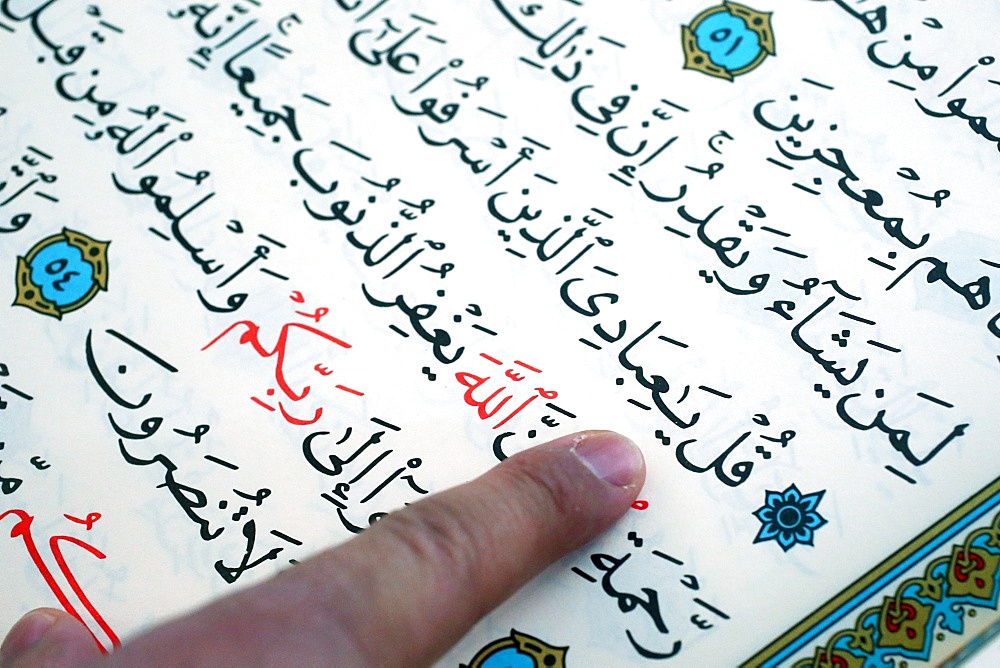 مِنْ
هُم بِمُعْجِزِينَ ٥١
لِمَن يَشَآءُ وَيَقْدِرُ ۚ إِنَّ فِى ذَٰلِكَ
قُلْ يَـٰعِبَادِىَ ٱلَّذِينَ أَسْرَفُوا۟ عَلَىٰٓ
رَّحْمَةِ ٱللَّهَ يَغْفِرُ ٱلذُّنُوبَ جَمِيعًا ۚ إِنَّهُۥ
إِلَىٰ رَبِّكُمْ وَأَسْلِمُوا۟ لَهُۥ مِن قَبْلِ
لَا تُنصَرُونَ ٥٤